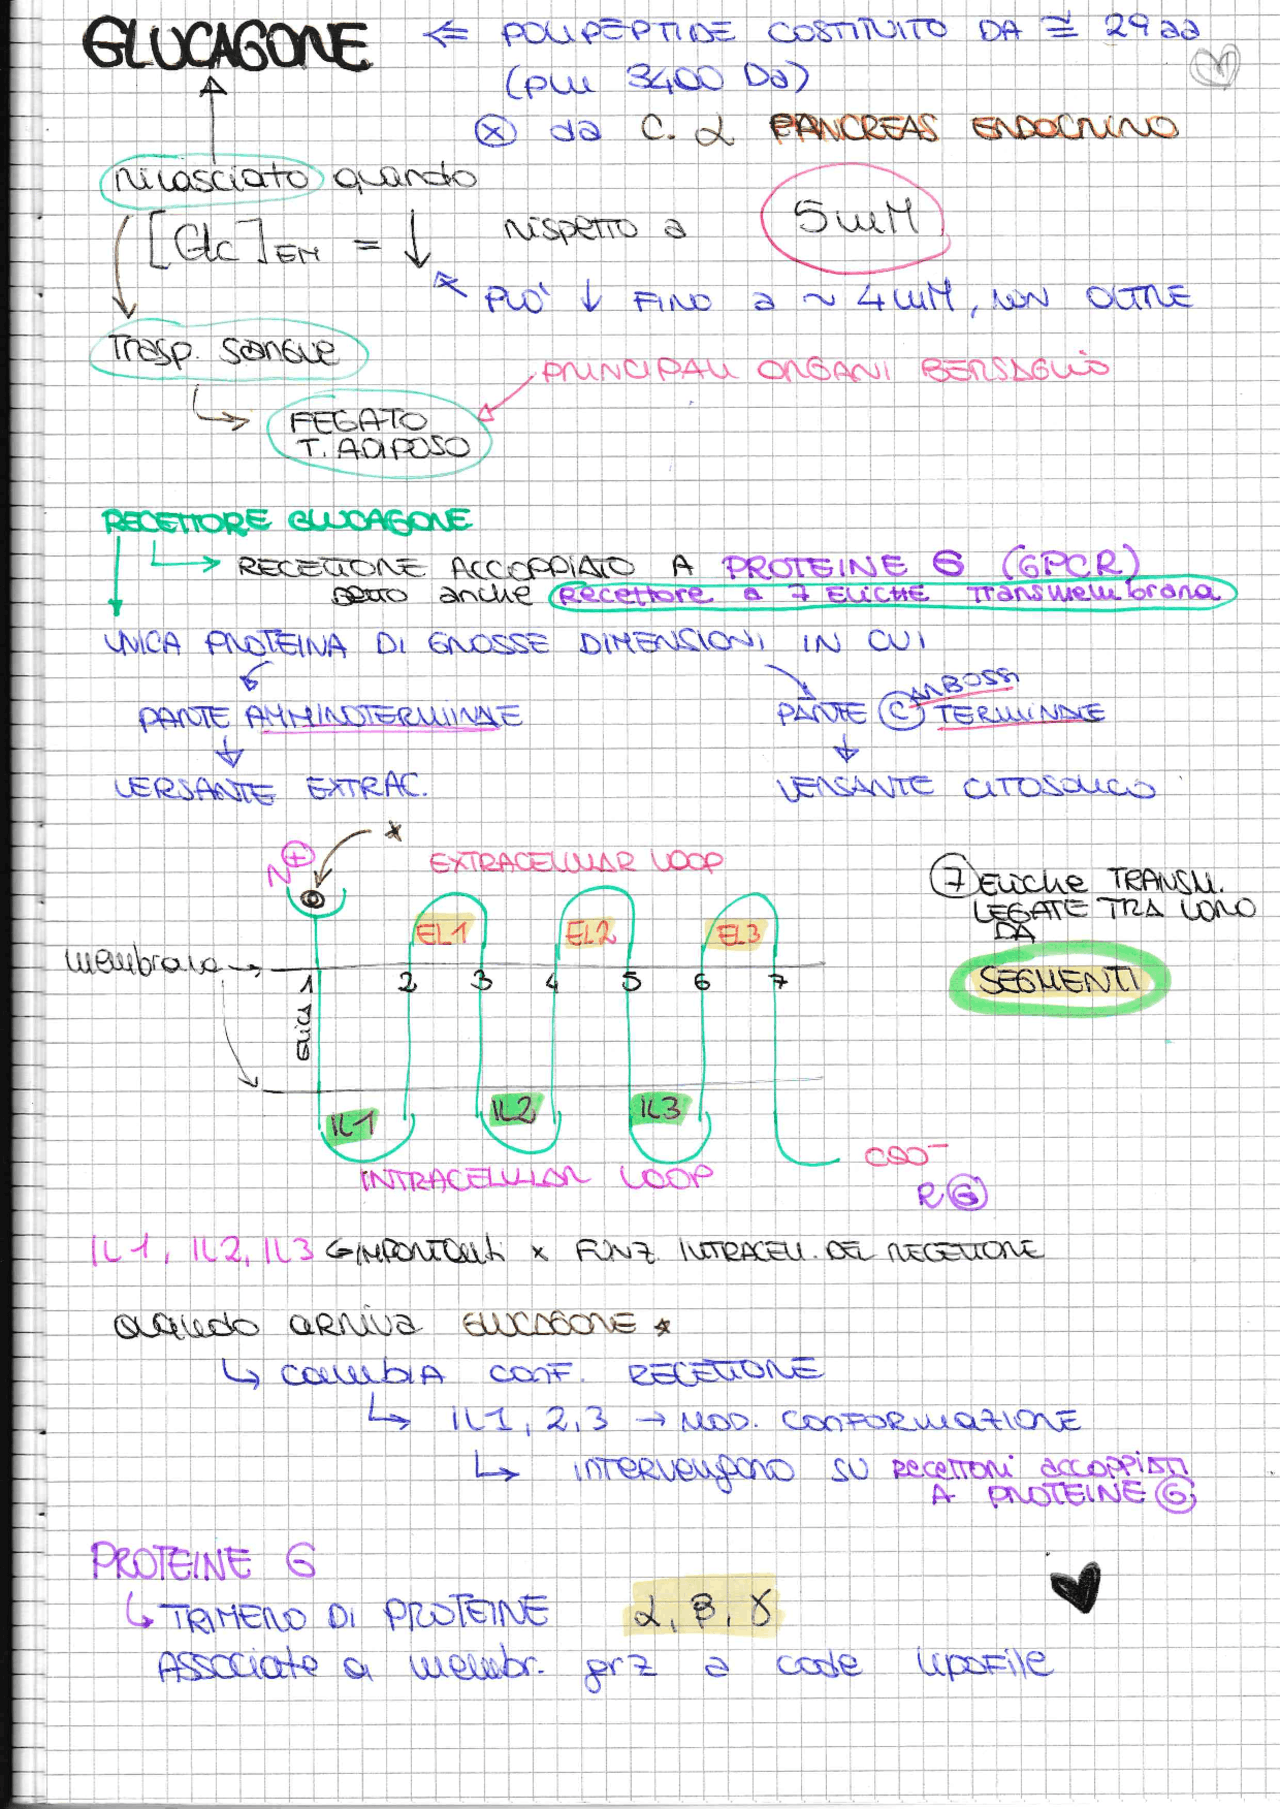 GLUCAGONE ⇐ POLIPEPTIDE COSTITUITO DA ≅ 29 aa
(PM 3400 Da)
ⓧ da C. α PANCREAS ENDOCRINO
rilasciato quando
[Glc]EM = ↓ rispetto a 5mM
* PUO' ↓ FINO a ~ 4mM, NON OLTRE
Trasp. sangue
PRINCIPALI ORGANI BERSAGLIO
FEGATO
T. ADIPOSO
RECETTORE GLUCAGONE
↳ RECETTORE ACCOPPIATO A PROTEINE G (GPCR)
DETTO anche Recettore a 7 ELICHE Transmembrana
UNICA PROTEINA DI GROSSE DIMENSIONI IN CUI
PARTE AMMINOTERMINALE
PARTE C ARBOSSI TERMINALE
VERSANTE EXTRAC.
VERSANTE CITOSOLICO
N⊕ *
EXTRACELLULAR LOOP
7 Eliche TRANSM.
LEGATE TRA LORO
DA
SEGMENTI
EL1 EL2 EL3
membrana
1 2 3 4 5 6 7
elica
IL1 IL2 IL3
INTRACELLULAR LOOP
COO⁻
R G
IL1, IL2, IL3 IMPORTANTI x FUNZ. INTRACELL. DEL RECETTORE
Quando arriva GLUCAGONE *
↳ CAMBIA CONF. RECETTORE
↳ IL1, 2, 3 → MOD. CONFORMAZIONE
↳ intervengono SU Recettori accoppiati
A PROTEINE G
PROTEINE G
↳ TRIMERO DI PROTEINE α, β, γ
ASSOCIATE a membr. grz a code lipofile